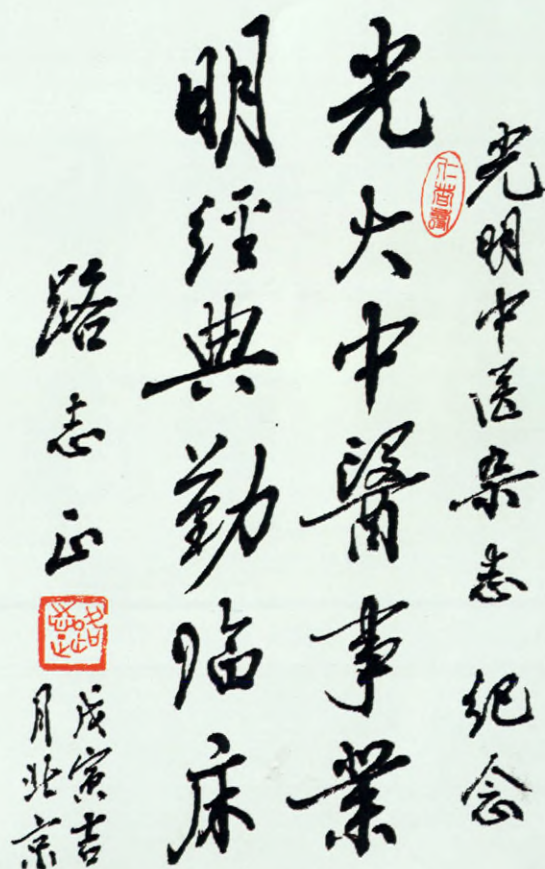 光明中医杂志 纪念
光大中醫事業
明經典勤临床
路志正
戊寅吉
月北京
路志正